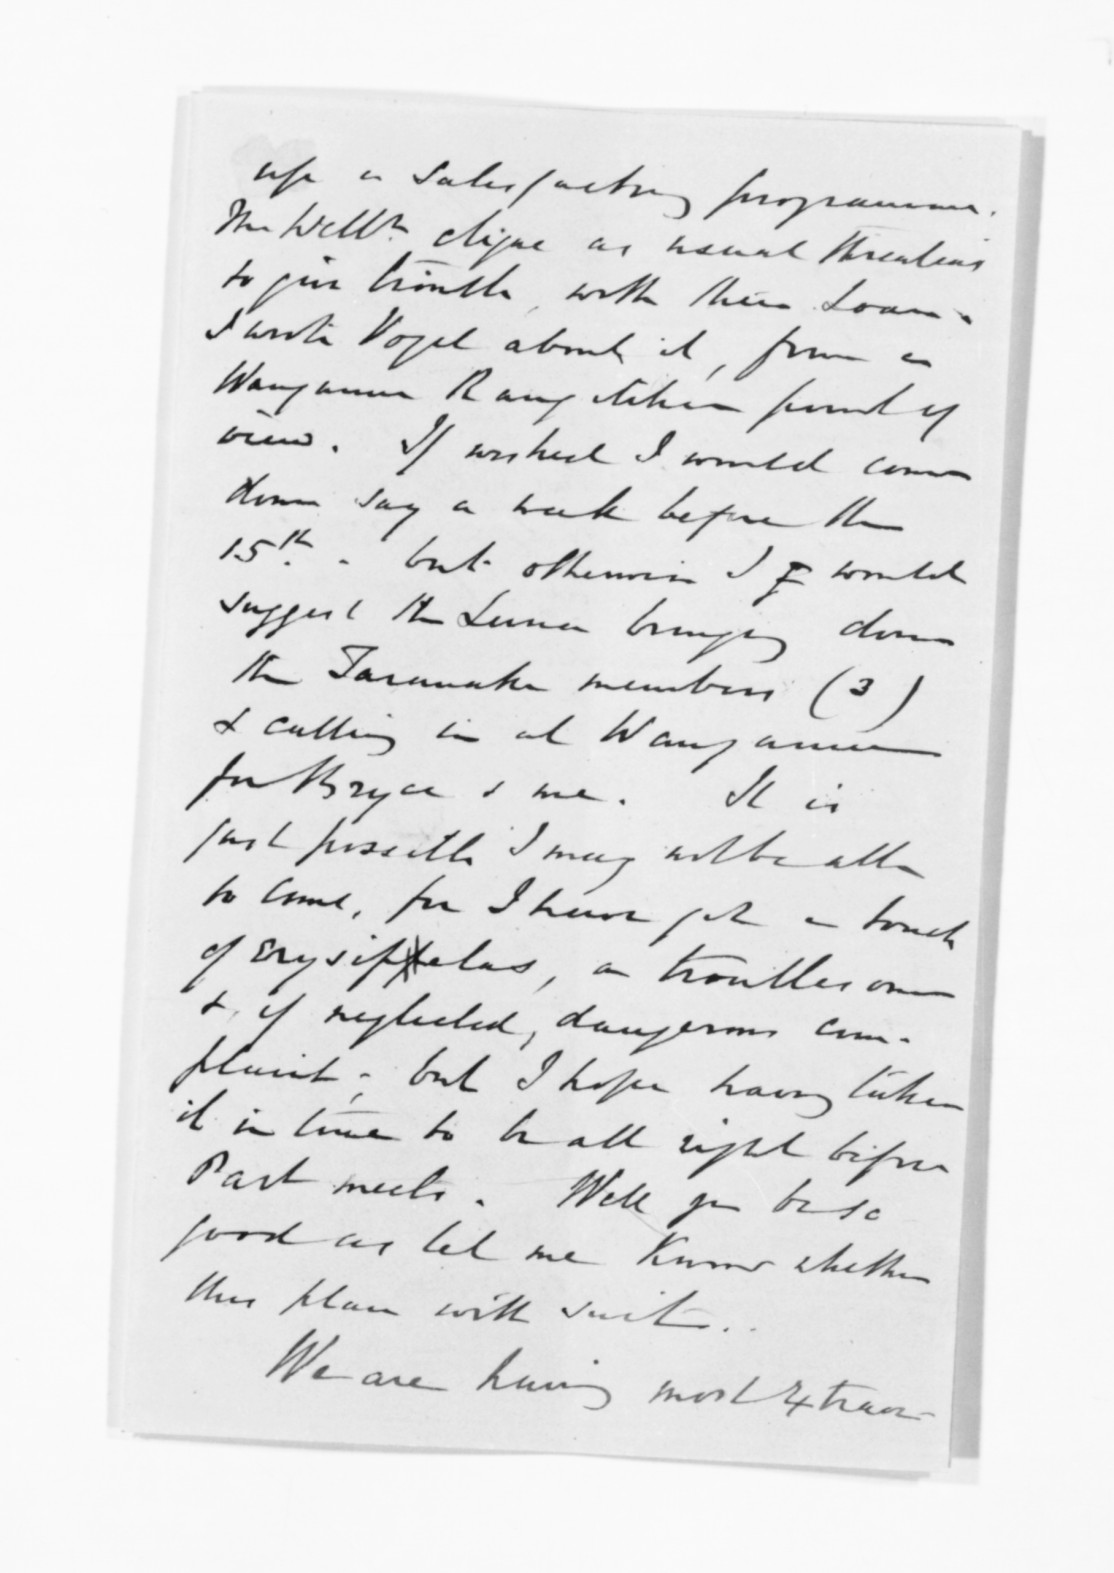 up a satisfactory programme.
The Welln. clique as usual threatens
to give trouble, with their Loan.
I wrote Vogel about it, from a
Wanganui Rangitikei point of
view. If wished I would come
down say a week before the
15th. - but otherwise I would
suggest the Luna bringing down
the Taranaki members (3)
& calling in at Wanganui
for Bryce & me. It is
just possible I may not be able
to come, for I have got a touch
of Erysipelas, a troublesome
&, if neglected, dangerous com-
plaint, - but I hope having taken
it in time to be all right before
Part meets. Will you be so
good as let me know whether
this plan will suit..
We are having most extraor-